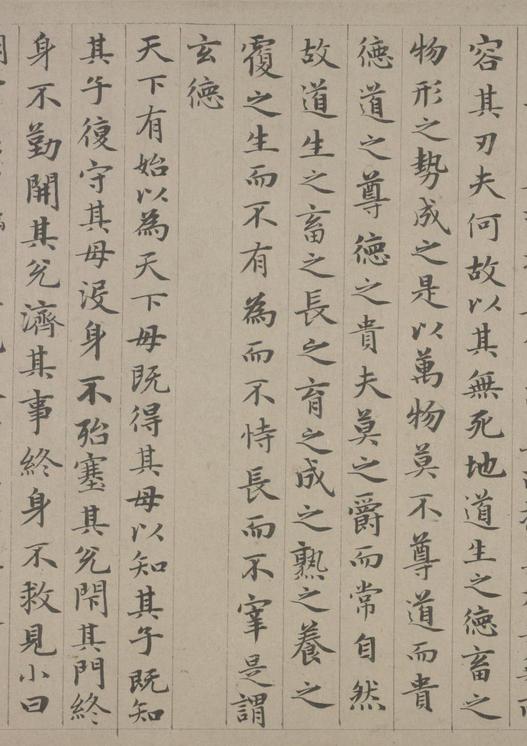 容其刃夫何故以其無死地道生之德畜之
物形之勢成之是以萬物莫不尊道而貴
德道之尊德之貴夫莫之爵而常自然
故道生之畜之長之育之成之熟之養之
覆之生而不有為而不恃長而不宰是謂
玄德
天下有始以為天下母既得其母以知其子既知
其子復守其母沒身不殆塞其兌閉其門終
身不勤開其兌濟其事終身不救見小曰